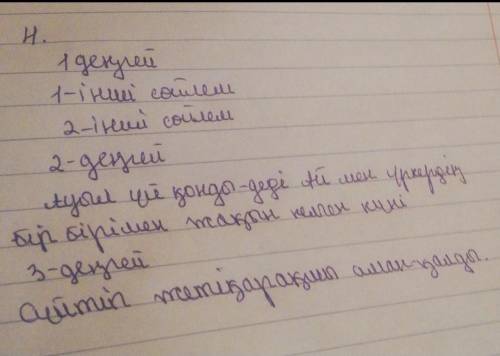 Н.
1 деңгей
1-інші сөйлем
2-інші сөйлем
2-деңгей
Ауыл үй қонды-деді Ай мен үркердің
бір бірімен жақын келген күні
3-деңгей
Сөйтіп жетіқарақшы аман-қалды.